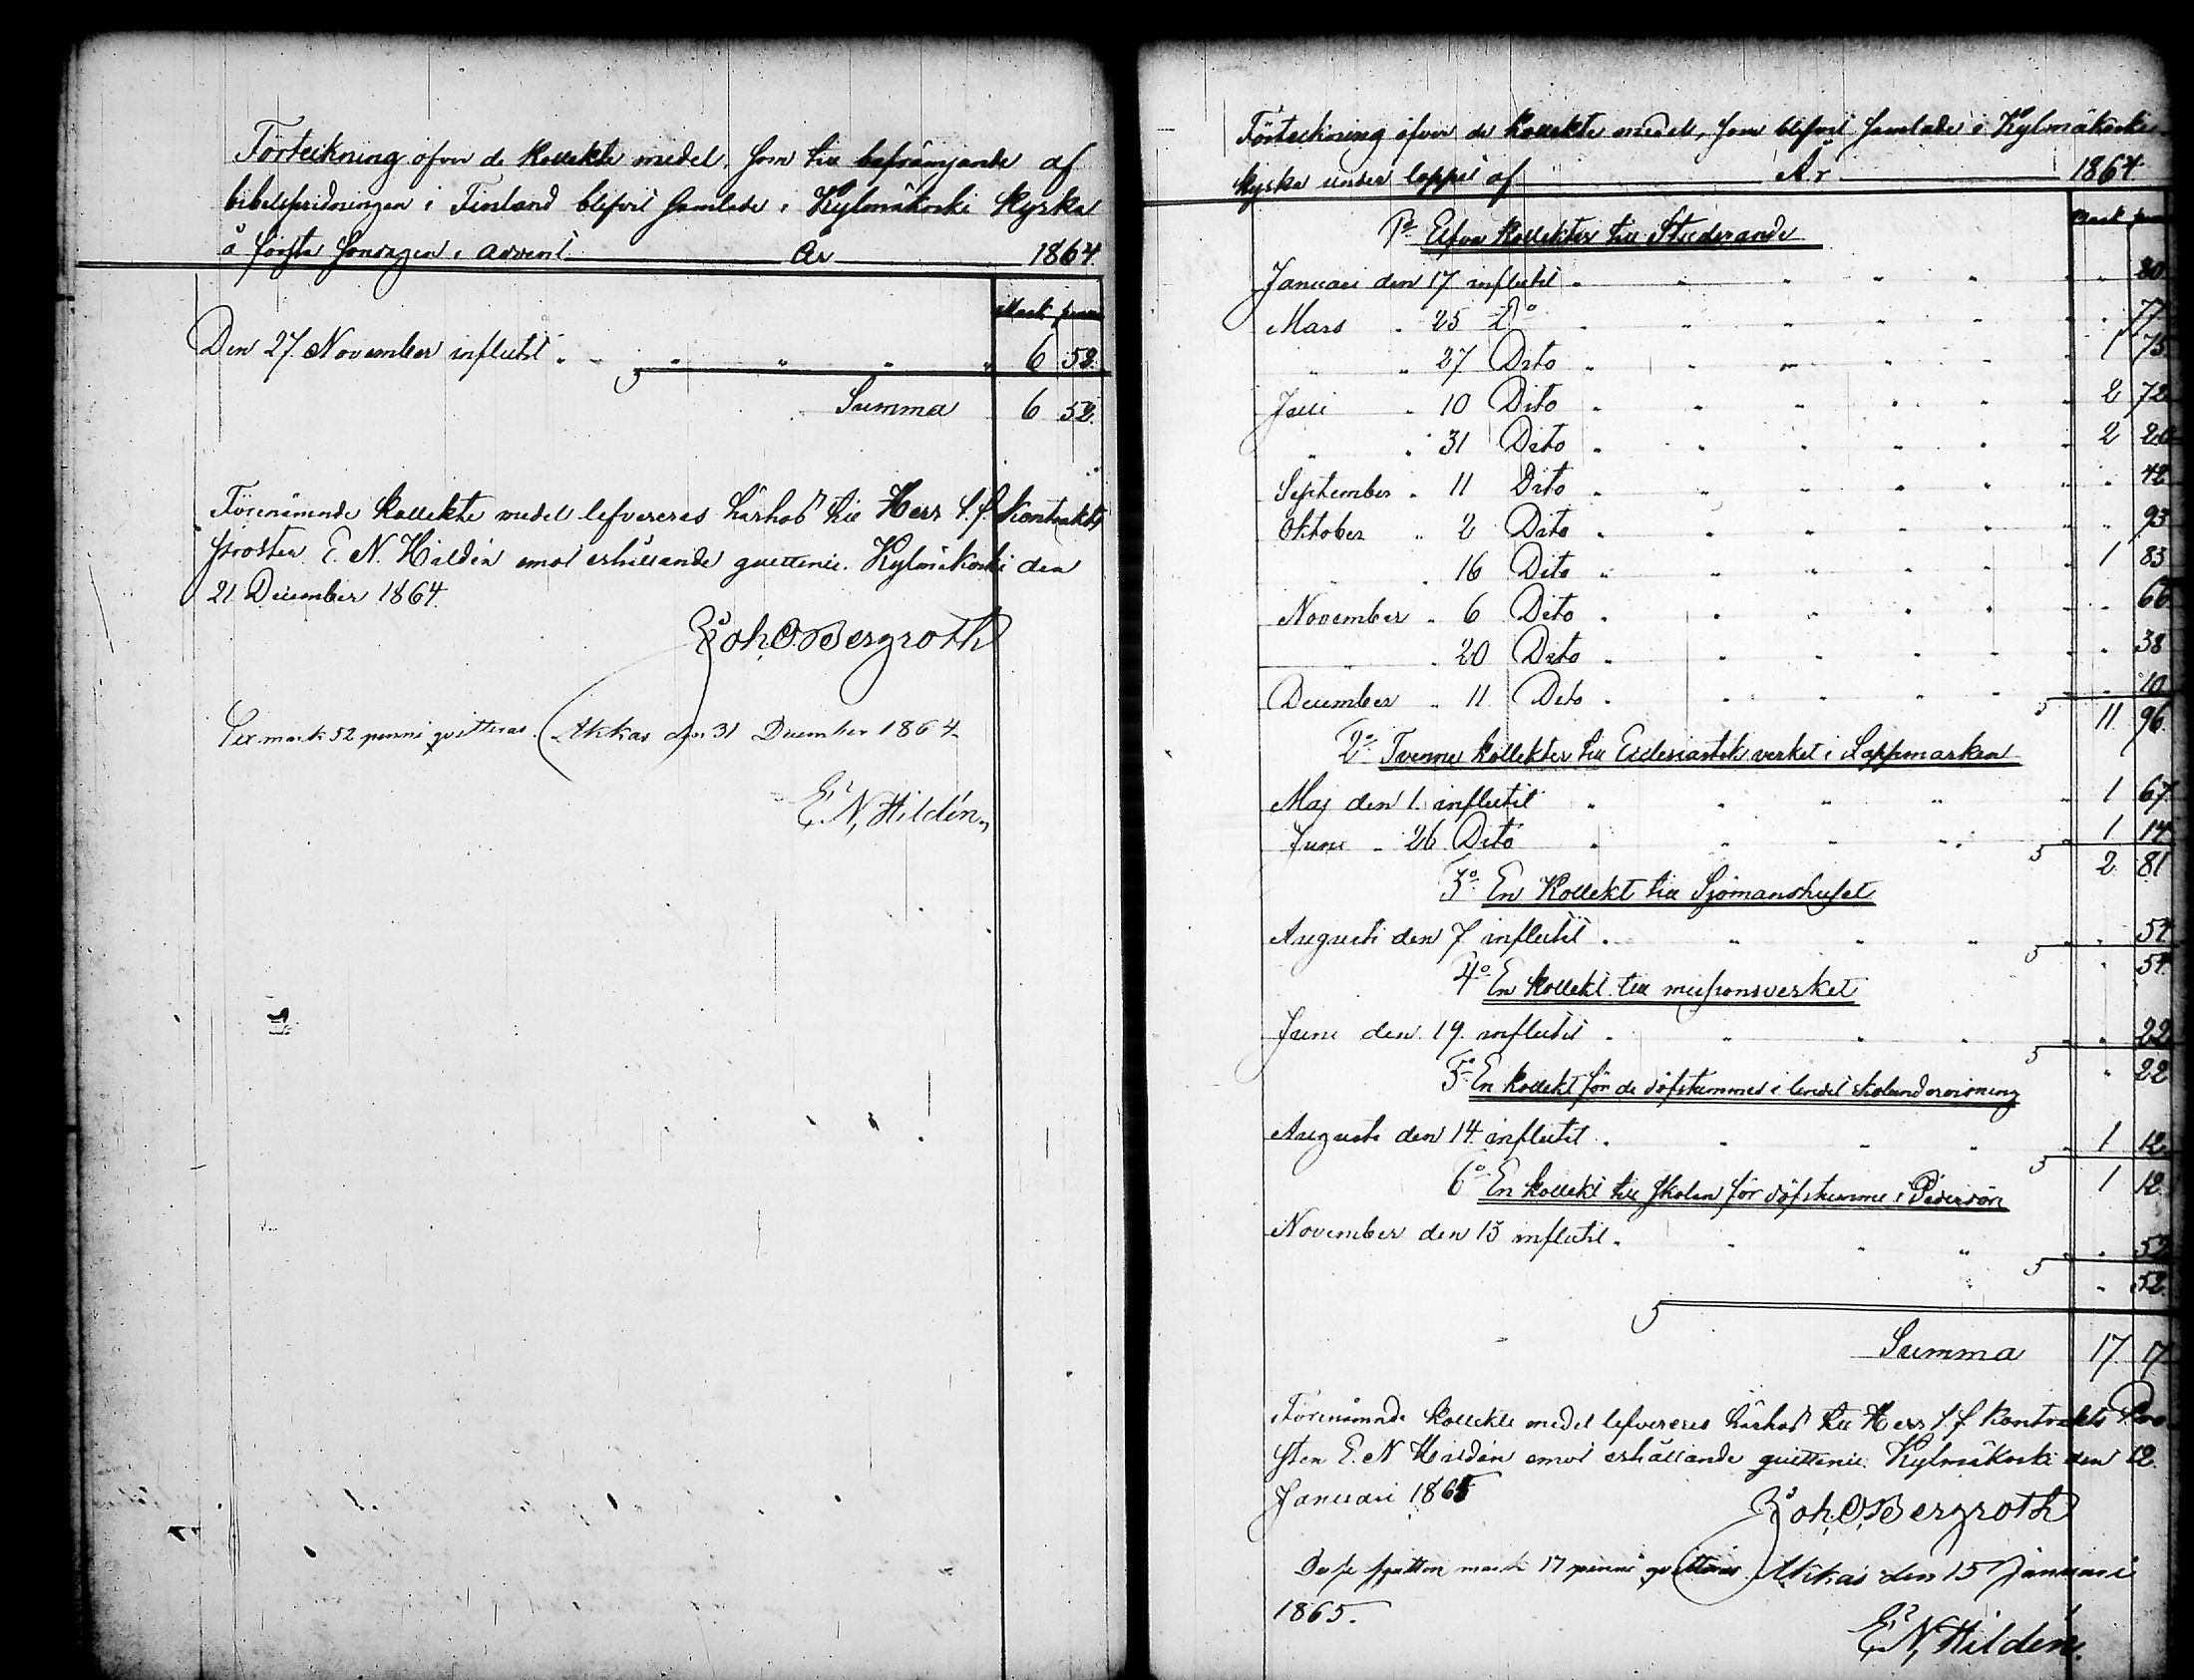 Förteckning öfver de kollekte medel, som till befrämjande af
bibelspridningen i Finland blifvit samlade i Kylmäkoski kyrka
å första söndagen i advent År 1864.
Mark penni
Den 27 November influtit " " " " 6 52.
Summa 6 52.
Förenämnde kollekte medel lefvereras härhos till Herr t. f. Kontrakts
prosten E. N. Hildén emot erhållande quittence. Kylmäkoski den
21 December 1864.
Joh. O. Bergroth
Sex mark 52 penni qvitteras. Akkas den 31 December 1864.
E. N. Hildén.
Förteckning öfver de kollekte medel, som blifvit samlade i Kylmäkoski
kyrka under loppet af År 1864
Mark penni
1º Elfva kollekter till Studerande
Januari den 17 influtit " " " " " " 80
Mars " 25 Dº " " " " " " 77
" " 27 Dito " " " " " 1 75
Juli " 10 Dito " " " " " 2 72
" " 31 Dito " " " " " 2 20
September " 11 Dito " " " " " " 42
Oktober " 2 Dito " " " " " " 93
" " 16 Dito " " " " " 1 83
November " 6 Dito " " " " " " 66
" " 20 Dito " " " " " " 38
December " 11 Dito " " " " " " 10
11 96.
2º Tvenne kollekter till Ecclesiastik verket i Lappmarken
Maj den 1. influtit " " " " " 1 67
Juni " 26 Dito " " " " " 1 14
2 81
3º En Kollekt till Sjömanshuset
Augusti den 7 influtit " " " " " " 54
" 54.
4º En kollekt till missionsverket
Juni den 19. influtit " " " " " " 22
" 22
5º En kollekt för de döfstummes i landet skolundervisning
Augusti den 14 influtit " " " " " 1 12
1 12.
6º En kollekt till skolan för döfstumme i Pedersöre
November den 13 influtit " " " " " " 52
" 52.
Summa 17 17
Förenämnde kollekte medel lefvereras härhos till Herr t. f. Kontrakts Pro-
sten E. N. Hildén emot erhållande quittence. Kylmäkoski den 12
Januari 1865
Joh. O. Bergroth
Desse sjutton mark 17 penni qvitteras. Akkas den 15 Januari
1865.
E. N. Hildén.